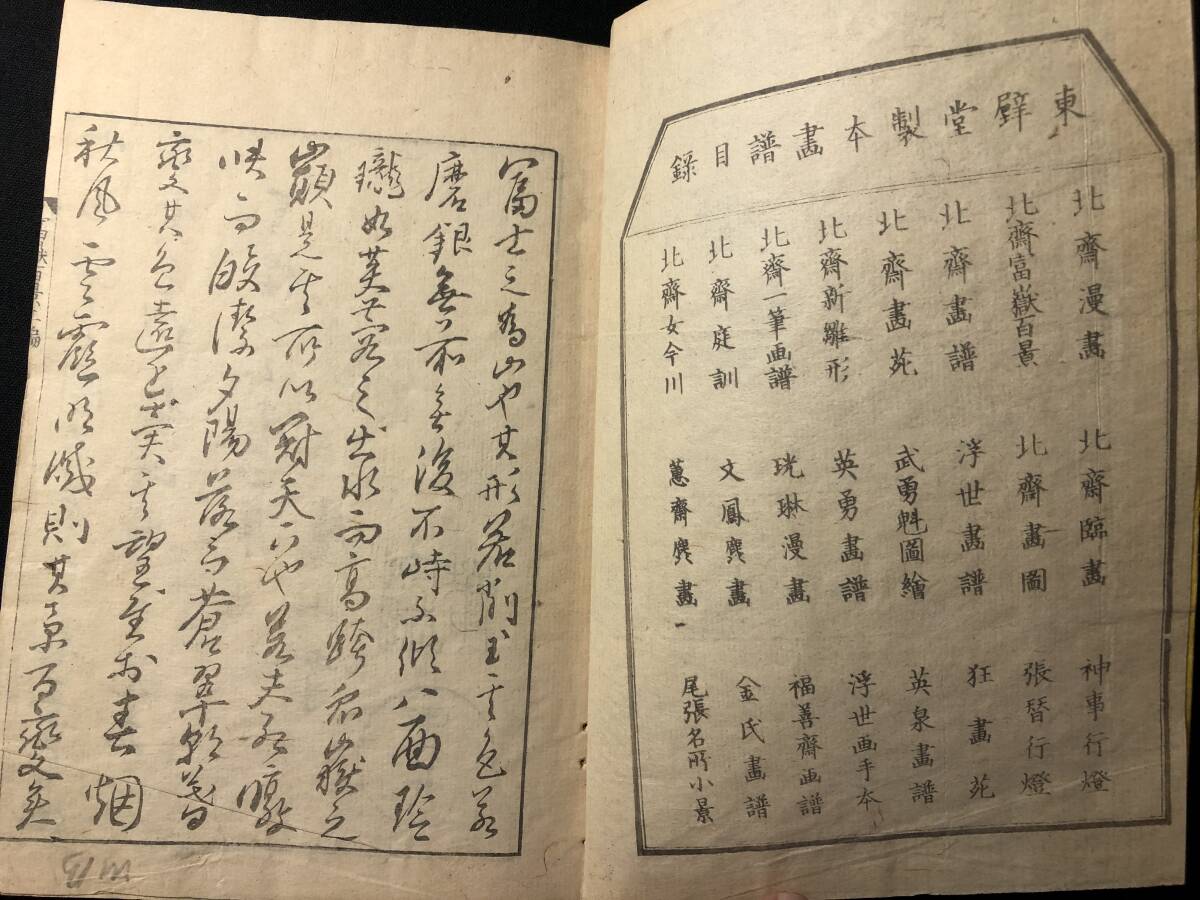 東壁堂製本畫譜目錄
北齋漫畫
北齋富嶽百景
北齋畫譜
北齋畫苑
北齋新雛形
北齋一筆画譜
北齋庭訓
北齋女今川
北齋臨畫
北齋畫圖
浮世畫譜
武勇魁圖繪
英勇畫譜
琳漫畫
文鳳麁畫
蕙齋麁畫
神事行燈
張替行燈
狂畫苑
英泉畫譜
浮世画手本
福善齋画譜
金氏畫譜
尾張名所小景
冨士之為山也其形若削玉其色若
磨銀無前無後不峙不傾八面玲
瓏如芙蓉之出水而高跨衆嶽之
巓是其所以冠天下也若夫
皎潔夕陽落而蒼翠朝暮
變其色遠近異其望至於春烟
秋風雲明滅則其景百變